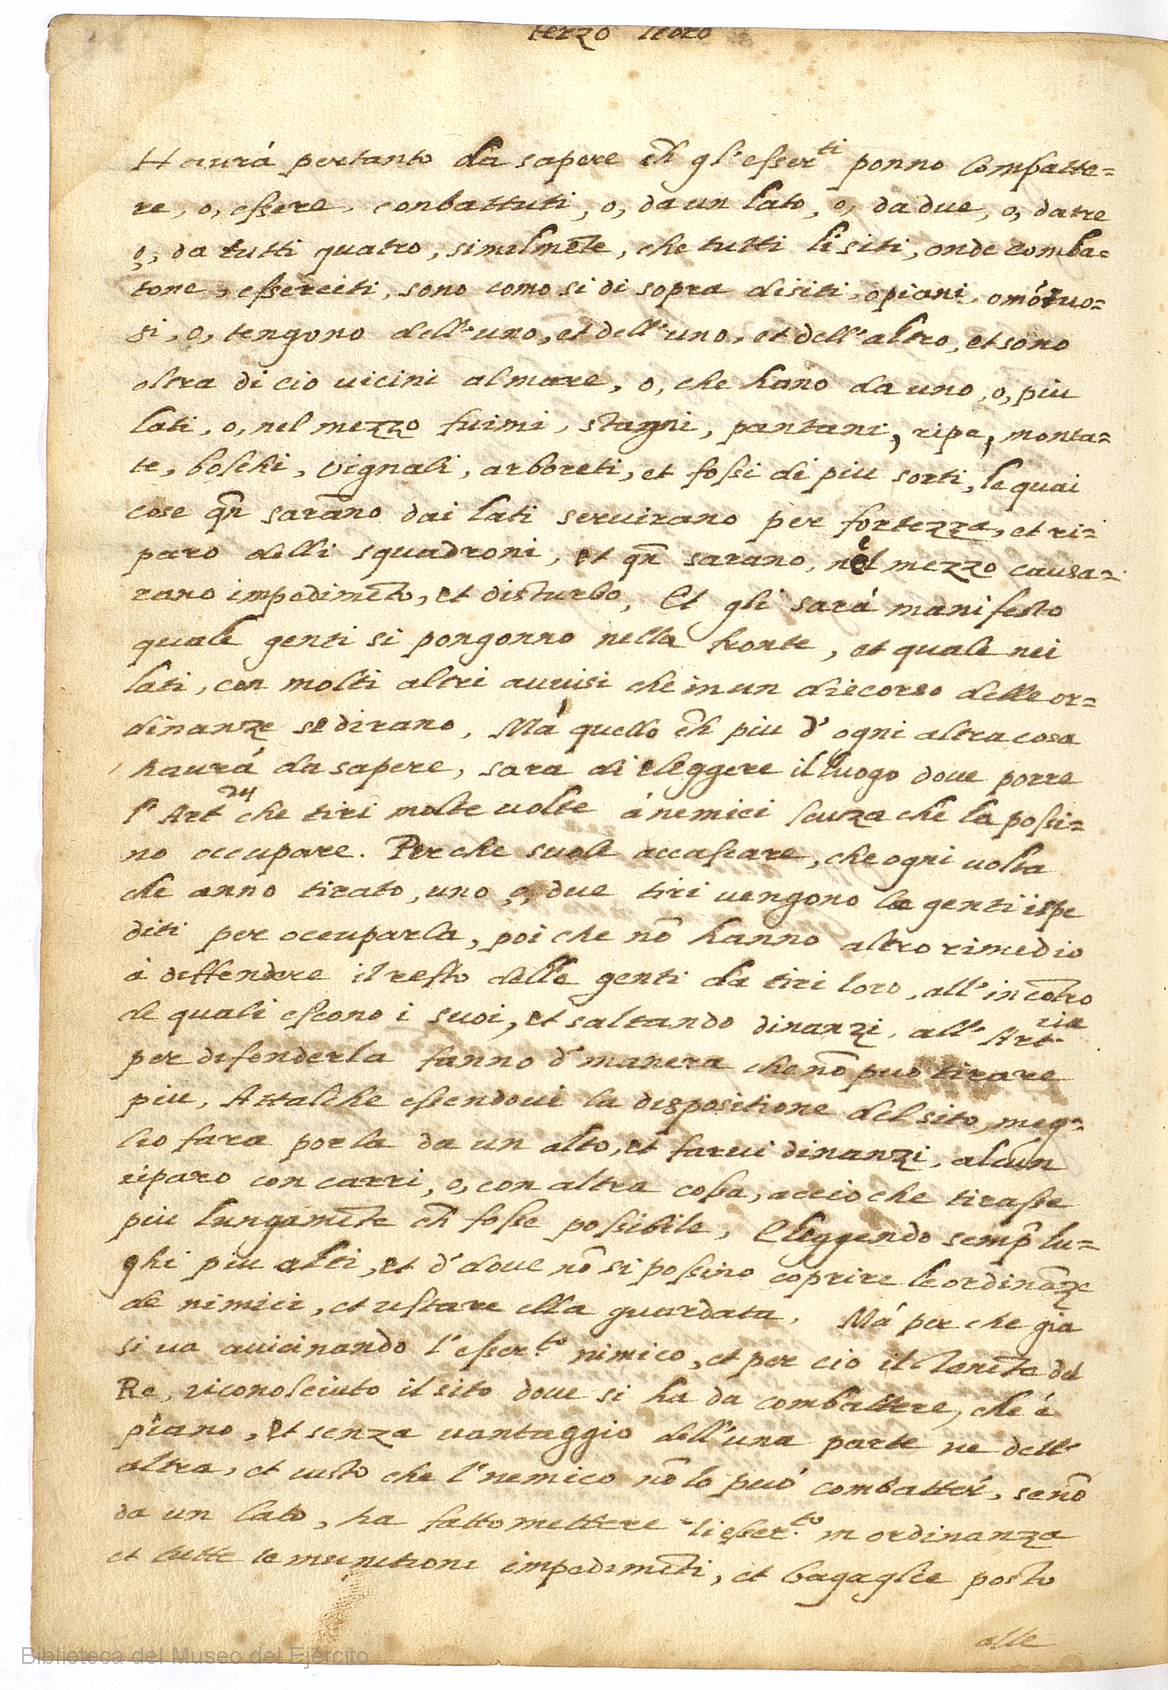 terzo leoro
Haurá pertanto da sapere ch̃ gl'esser.ti ponno Combatte=
re, o, essere, conbattuti, o, da un lato, o, da due, o, da tre
o, da tutti quatro, similmẽte, che tutti li siti, onde comba=
tone, esserciti, sono como si di sopra disiti, o piani, o mõtuo=
si, o, tengono dell'uno, et dell'uno, et dell'altro, et sono
oltra di cio uicini al mare, o, che hano da uno, o, piu
lati, o, nel mezzo fuimi, stagni, pantani, ripe, monta=
te, boschi, Vignali, arboreti, et fossi di piu sorti, le quai
cose qñ sarãno dai lati seruirano per fortezza, et ri=
paro delli squadroni, et qñ sarano, nel mezzo causa=
rano impedimẽto, et disturbo, Et gli sará manifesto
quale genti si pongonno nella fronte, et quale nei
lati, con molti altri auuisi che in un discorso delle or=
dinanze se dirano, Má quello ch̃ piu d'ogni altra cosa
haurá da sapere, sara di eleggere il luogo doue porre
l'Art.ria che tiri molte uolte á nemici senza che la possi=
no occupare. Perche suole accascare, che ogni uolta
che anno tirato, uno o, due tiri vengono le genti ispe
diti per occuparla, poi che nõ hanno altro rimedio
á deffendere il resto delle genti da tiri loro, all'incõtro
de quali escono i suoi, et saltando dinanzi, all'Art.ria
per defenderla fanno d'manera che nõ può tirare
piu, Attalche essendoui la dispositione del sito, meg=
lio fara porla da un alto, et farui dinanzi, alcun
riparo con carri, o, con altra cosa, accio che tirasse
piu lungamẽte ch̃ fosse possibile, Eleggendo semp̃ lu=
ghi piu alti, et d'doue nõ si possino coprire le ordinãze
de nimici, et restare ella guardata, Má per che gia
si ua auicinando l'esser.to nimico, et per cio il Tenẽte del
Re, riconosciuto il sito doue si ha da combattere, che é
piano, et senza vantaggio dell'una parte ne dell'
altra, et uisto che l'nemico nõ lo può combatter, se nõ
da un lato, ha fatto mettere li esser.to in ordinanza
et tutte le munitioni impedimẽti, et bagaglie posto
alle
Biblioteca del Museo del Ejército